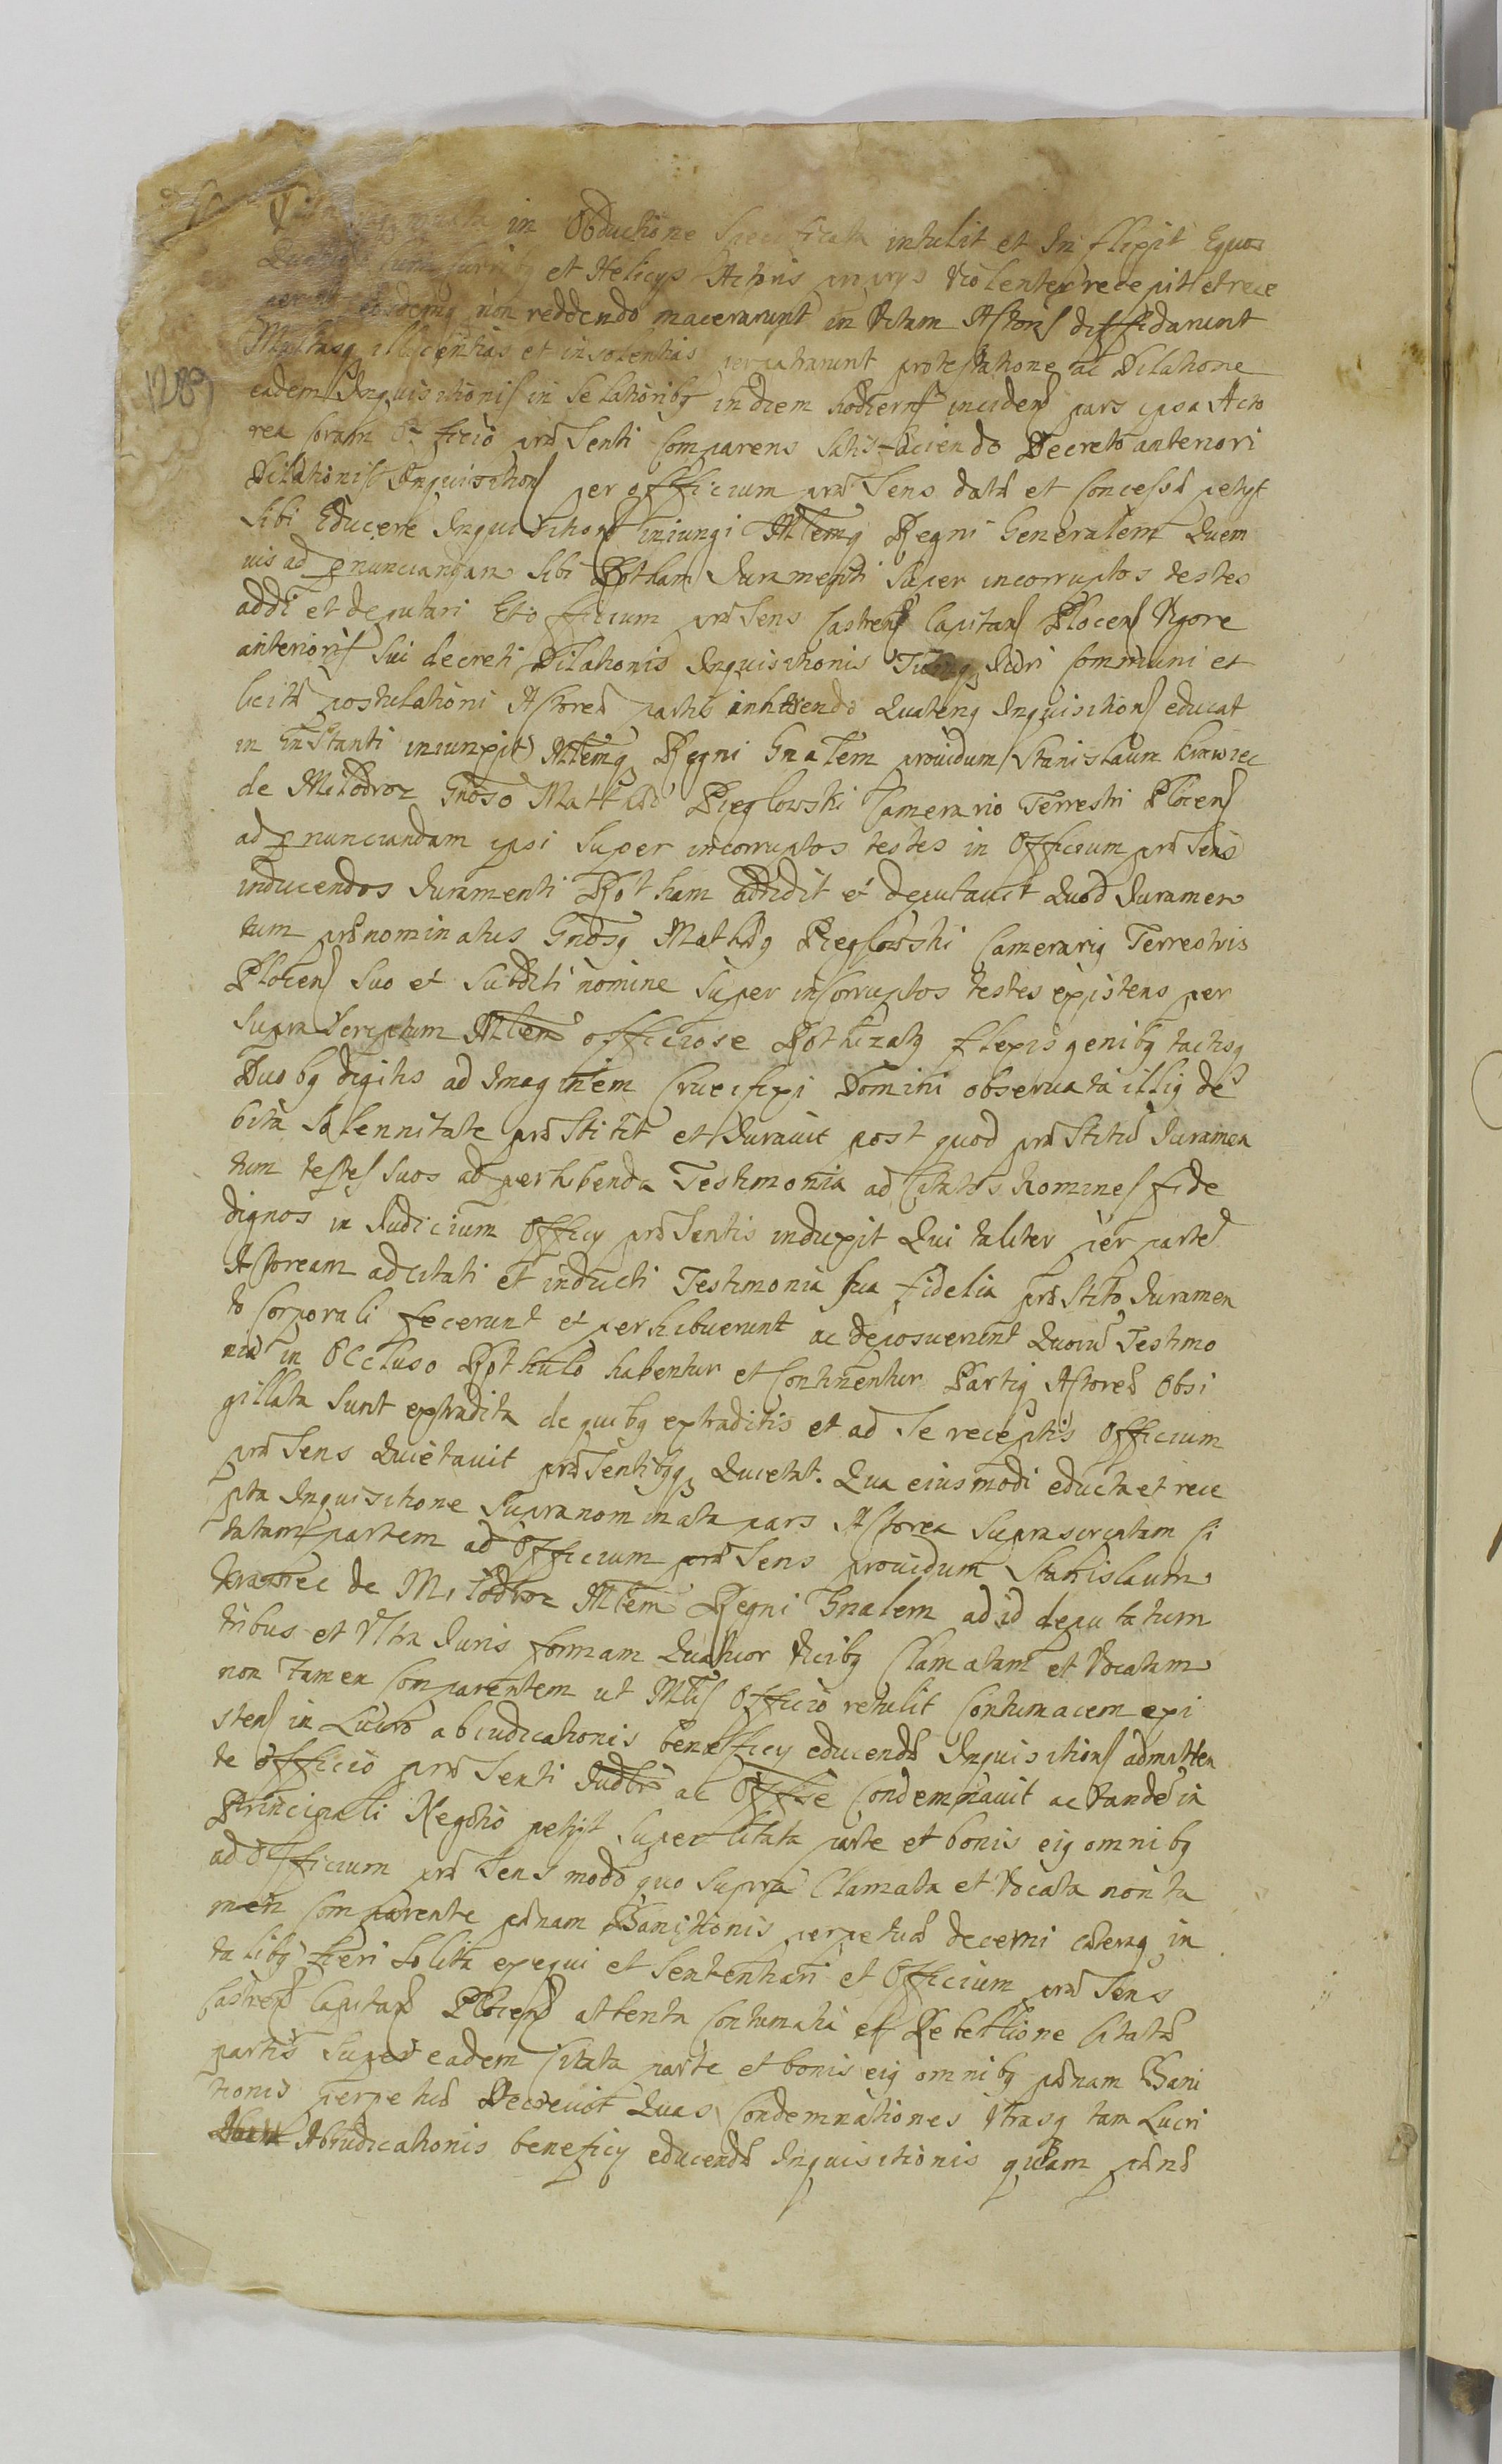 in Obductione Specificata intulit et Inflixit Equos
et Helcijs Actoris proprijs violenter recepit et rece
non reddendo macerarunt in vitam Actoris diffidarunt
Multasq illicentias et insolentias perpatrarunt protestatione ac Dilatione
1289
eadem Inquisitionis in Relationibq in diem hodiern inciden pars ipsa Acto
rea Coram Officio prӕsenti Comparens Satisfaciendo Decreto anteriori
Dilationis Inquisition per officium prӕsens datӕ et Concessӕ petijt
Sibi Educere Inquisition iniungi Mlemq Regni Generalem Quem
uis ad pnunciandam sibi Rotham Juramenti Super incorruptos testes
addi et deputari Et officium prӕsens Castren Capitan Plocen Vigore
anterioris Sui decreti Dilationis Inquisitionis Juri Communi et
licitӕ postulationi Actoreӕ partis inhӕrendo Quatenq Inquisition educat
in Instanti iniunxit Mlemq Regni Gnalem prouidum Stanislaum Krawiec
de Milodroz Gnoso Matthӕo Pieglowski Camerario Terrestri Plocen
ad pnunciandam ipsi Super incorruptos testes in Officium prӕsens
inducendos Juramenti Rotham addidit et deputauit Quod Juramen
tum prӕnominatus Gnosq Mathӕq Pieglowski Camerariq Terrestris
Plocen Suo et Subditi nomine Super incorruptos testes existens per
Supra scriptum Mlem officiose Rothizatq flexis genibq tactisq
Duobq digitis ad Imaginem Crucifixi Domini obseruata illiq de
bita Solennitate prӕstitit et Jurauit post quod prӕstitu Juramen
tum testes Suos ad perhibenda Testimonia ad Citatos homines fide
dignos in Judicium Officij prӕsentis induxit Qui taliter per parte
Actoream adcitati et inducti Testimonia Sua fidelia prӕstito Juramen
to Corporali fecerunt et perhibuerunt ac deposuerunt Quoru Testimo
nia in Occluso Rothulo habentur et Continentur Partiq Actoreӕ Obsi
gillata Sunt extradita de quibq extraditis et ad Se receptis Officium
prӕsens Quietauit prӕsentibqq Quietat. Qua eiusmodi educta et rece
pta Inquisitione Supranominata pars Actorea Suprascriptam Ci
tatam partem ad Officium prӕsens prouidum Stanislaum
Krawiec de Milodroz Mlem Regni Gnalem ad id deputatum
tribus et Vltra Juris formam Quatuor Vicibq Clamatam et Vocatam
non tamen Comparentem ut Mlis Officio retulit Contumacem exi
sten in Lucro abiudicationis beneficij educendӕ Inquisition admitten
te officio prӕsenti Judlr ac Offose Condemnauit ac tande in
Principali Negotio petijt Super Citata parte et bonis eiq omnibq
ad Officium prӕsens modo quo Supra Clamata et Vocata non ta
men Comparente pӕnam Banitionis perpetuӕ decerni cӕteraq in
talibq fieri Solita exequi et Sententiari et Officium prӕsens
Castren Capitan Plocen attenta Contumatia et Rebellione Citatӕ
partis Super eadem Citata parte et bonis eiq omnibq pӕnam Bani
tionis perpetuӕ Decreuit Quas Condemnationes Vtrasq tam Lucri
Abiudicationis beneficij educendӕ Inquisitionis quam pӕnӕ